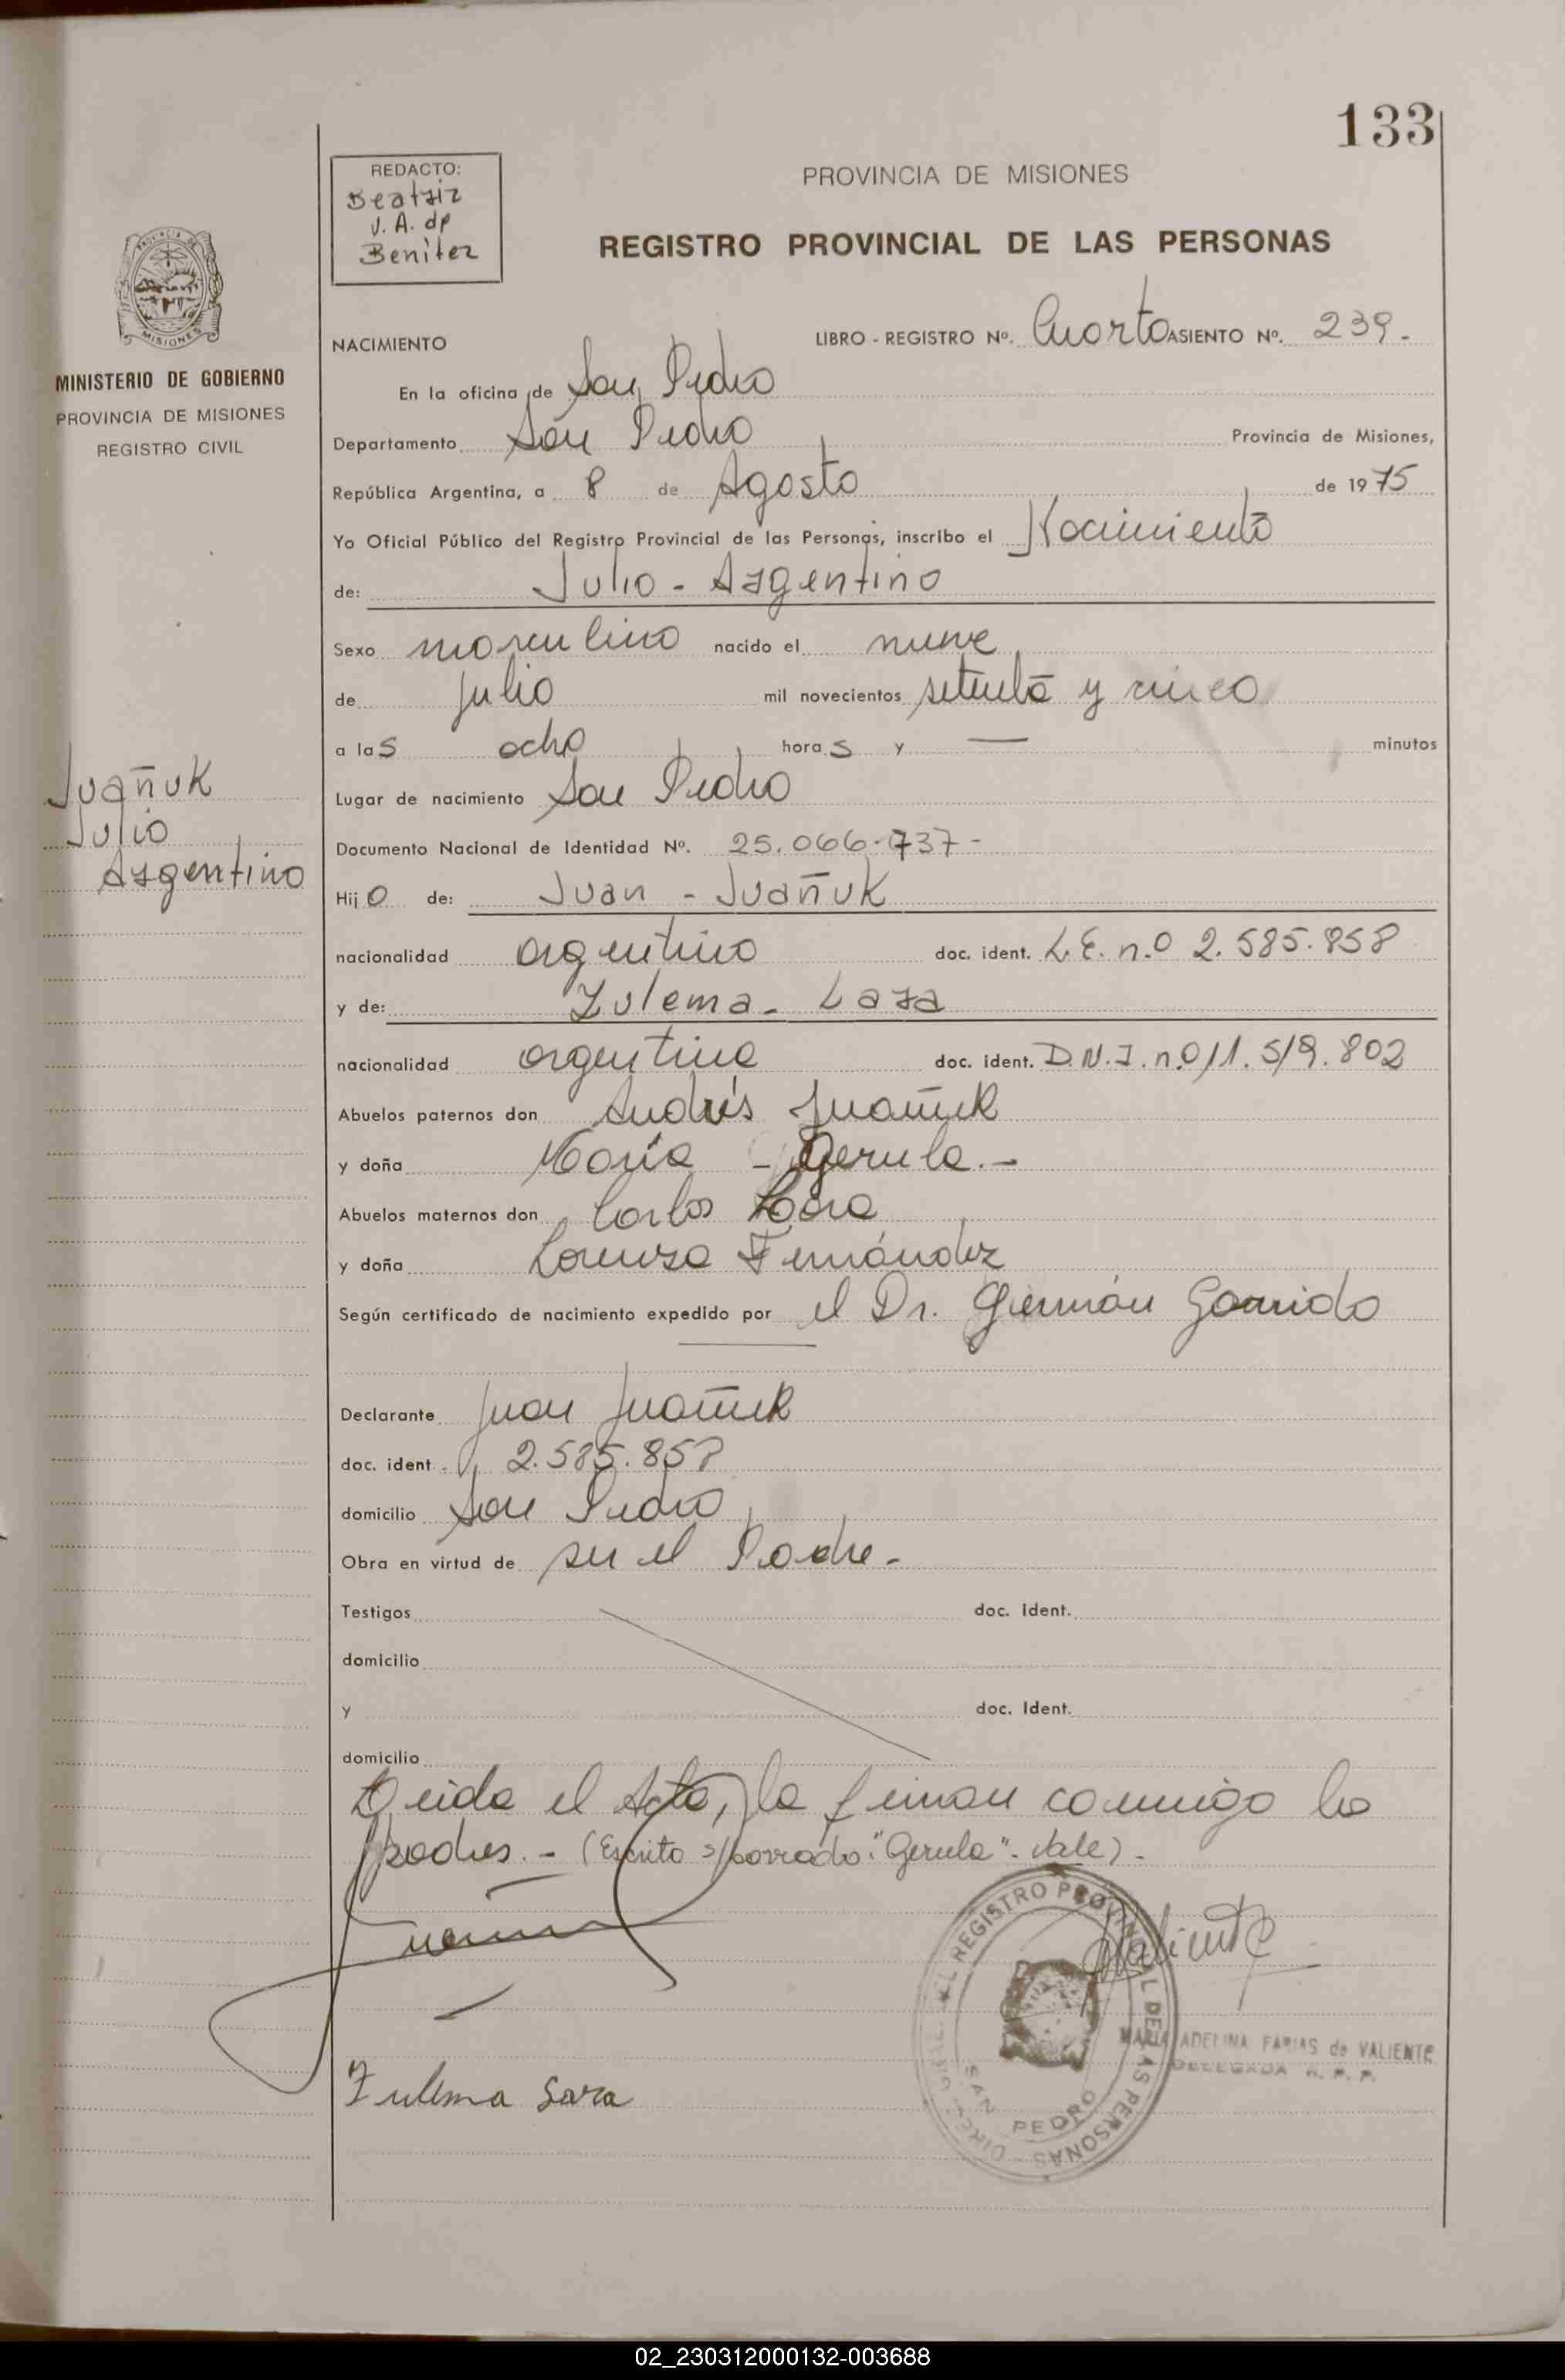 133
REDACTO:
Beatriz
V. A. de
Benitez
PROVINCIA DE MISIONES
REGISTRO PROVINCIAL DE LAS PERSONAS
PROVINCIA DE MISIONES
MINISTERIO DE GOBIERNO
PROVINCIA DE MISIONES
REGISTRO CIVIL
NACIMIENTO LIBRO - REGISTRO Nº. Cuarto ASIENTO Nº. 239.
En la oficina de San Pedro
Departamento San Pedro Provincia de Misiones,
República Argentina, a 8 de Agosto de 1975
Yo Oficial Público del Registro Provincial de las Personas, inscribo el Nacimiento
de: Julio - Argentino
Sexo masculino nacido el nueve
de julio mil novecientos setenta y cinco
a las ocho horas y — minutos
Juañuk
Julio
Argentino
Lugar de nacimiento San Pedro
Documento Nacional de Identidad Nº. 25.066.737-
Hijo de: Juan - Juañuk
nacionalidad argentino doc. ident. L.E. n.o 2.585.858
y de: Zulema - Lara
nacionalidad argentina doc. ident. D.N.I. n.o 11.519.802
Abuelos paternos don Andrés Juañuk
y doña María - Gerula.-
Abuelos maternos don Carlos Lara
y doña Lorenza Fernández
Según certificado de nacimiento expedido por el Dr. Germán Garrido
Declarante Juan Juañuk
doc. ident. 2.585.858
domicilio San Pedro
Obra en virtud de ser el Padre.
Testigos doc. ident.
domicilio
y doc. Ident.
domicilio
Leida el Acta, la firman conmigo los
padres. - (Escrito s/borrado: "Gerula". Vale) -
Valiente
DEL REGISTRO PROVINCIAL DE LAS PERSONAS
SAN PEDRO
MARIA ADELINA FARIAS de VALIENTE
DELEGADA R. P. P.
Zulema Lara
02_230312000132-003688